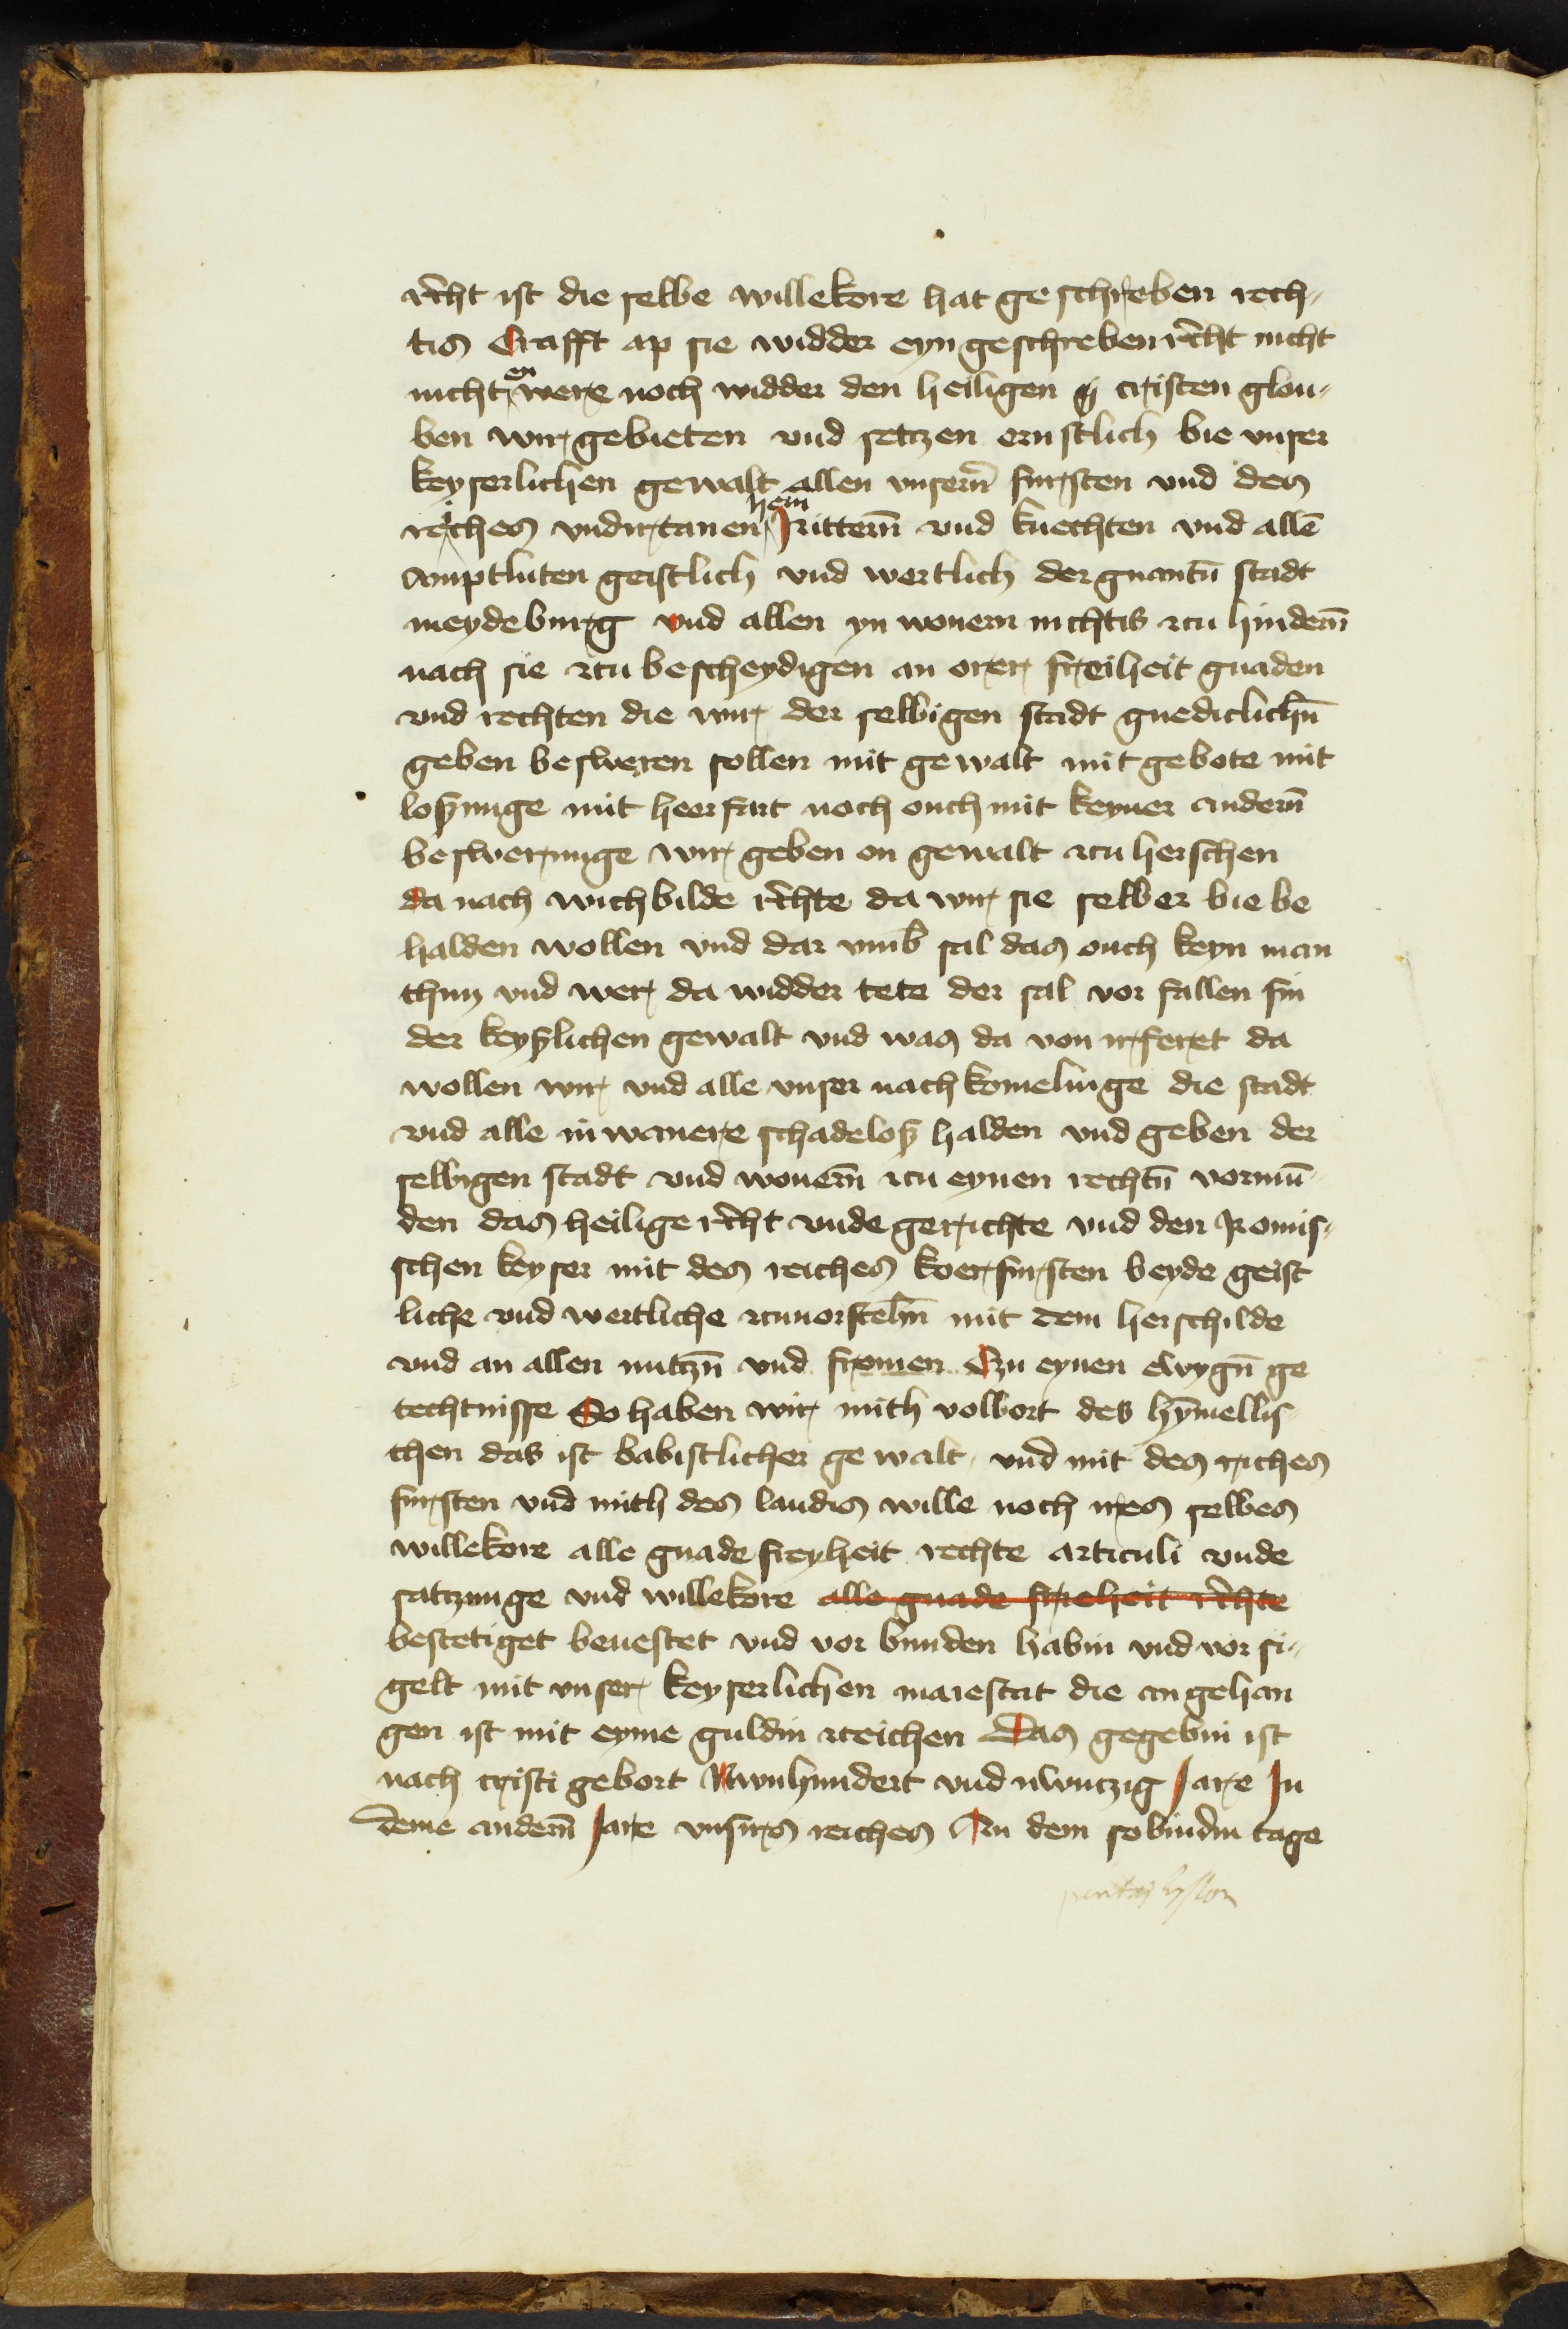 rc̄ht ist die selbe willekore hat geschreben rech-
tis Crafft ap sie widder eyn geschreben rc̄ht nicht
nicht en were noch widder den heiligen cristen glou-
ben wir gebieten vnd setzen ernstlich bie vnser
keyserlichen gewalt allen vnsern̄ fursten vnd des
reiches vndirtanen hern rittern̄ vnd knechten vnd allē
Amptluten geistlich vnd wertlich der gnantn̄ stadt
meydeburg vnd allen yn wonern nichtis czu hindern̄
nach sie czu bescheydigen an orer freiheit gnaden
vnd rechten die wir der selbigen stadt gnediclichn̄
geben besweren sollen mit gewalt mit gebote mit
loßunge mit heerfart noch ouch mit keyner andern̄
beswerunge wir geben on gewalt czu herschen
da nach wichbilde rc̄hte da wir sie selber bie be
halden wollen vnd dar vmb sal das ouch keyn man
thun vnd wer da widder tete der sal vor fallen sin
der keyßlichen gewalt vnd was da von irferet da
wollen wir vnd alle vnser nachkomelinge die stadt
vnd alle inwanere schadeloß halden vnd geben der
selbigen stadt vnd wonern̄ czu eynen rechtn̄ vormū-
den das heilige rc̄ht vnde gerichte vnd den Romis-
schen keyser mit des reiches koerfursten beyde geist
liche vnd wertliche czuuorstehn̄ mit dem herschilde
vnd an allen nutzn̄ vnd fromen Czu eynen ewygn̄ ge
techtnisse So haben wir mith volbort des hȳmellis-
chen das ist babistlicher gewalt vnd mit des riches
fursten vnd mith des landis wille noch ires selbes
willekore alle gnade freyheit rechte articuli vnde
satzunge vnd willekore alle gnade frieheit rc̄hte
bestetiget beuestet vnd vor bunden habin vnd vor si-
gelt mit vnser keyserlichen maiestat die angehan
gen ist mit eyme guldin czeichen Das gegebin ist
nach cristi gebort Nwnhundert vnd nwnczig Jare In
deme andern̄ Jare vnsirs reiches An dem sobindin tage